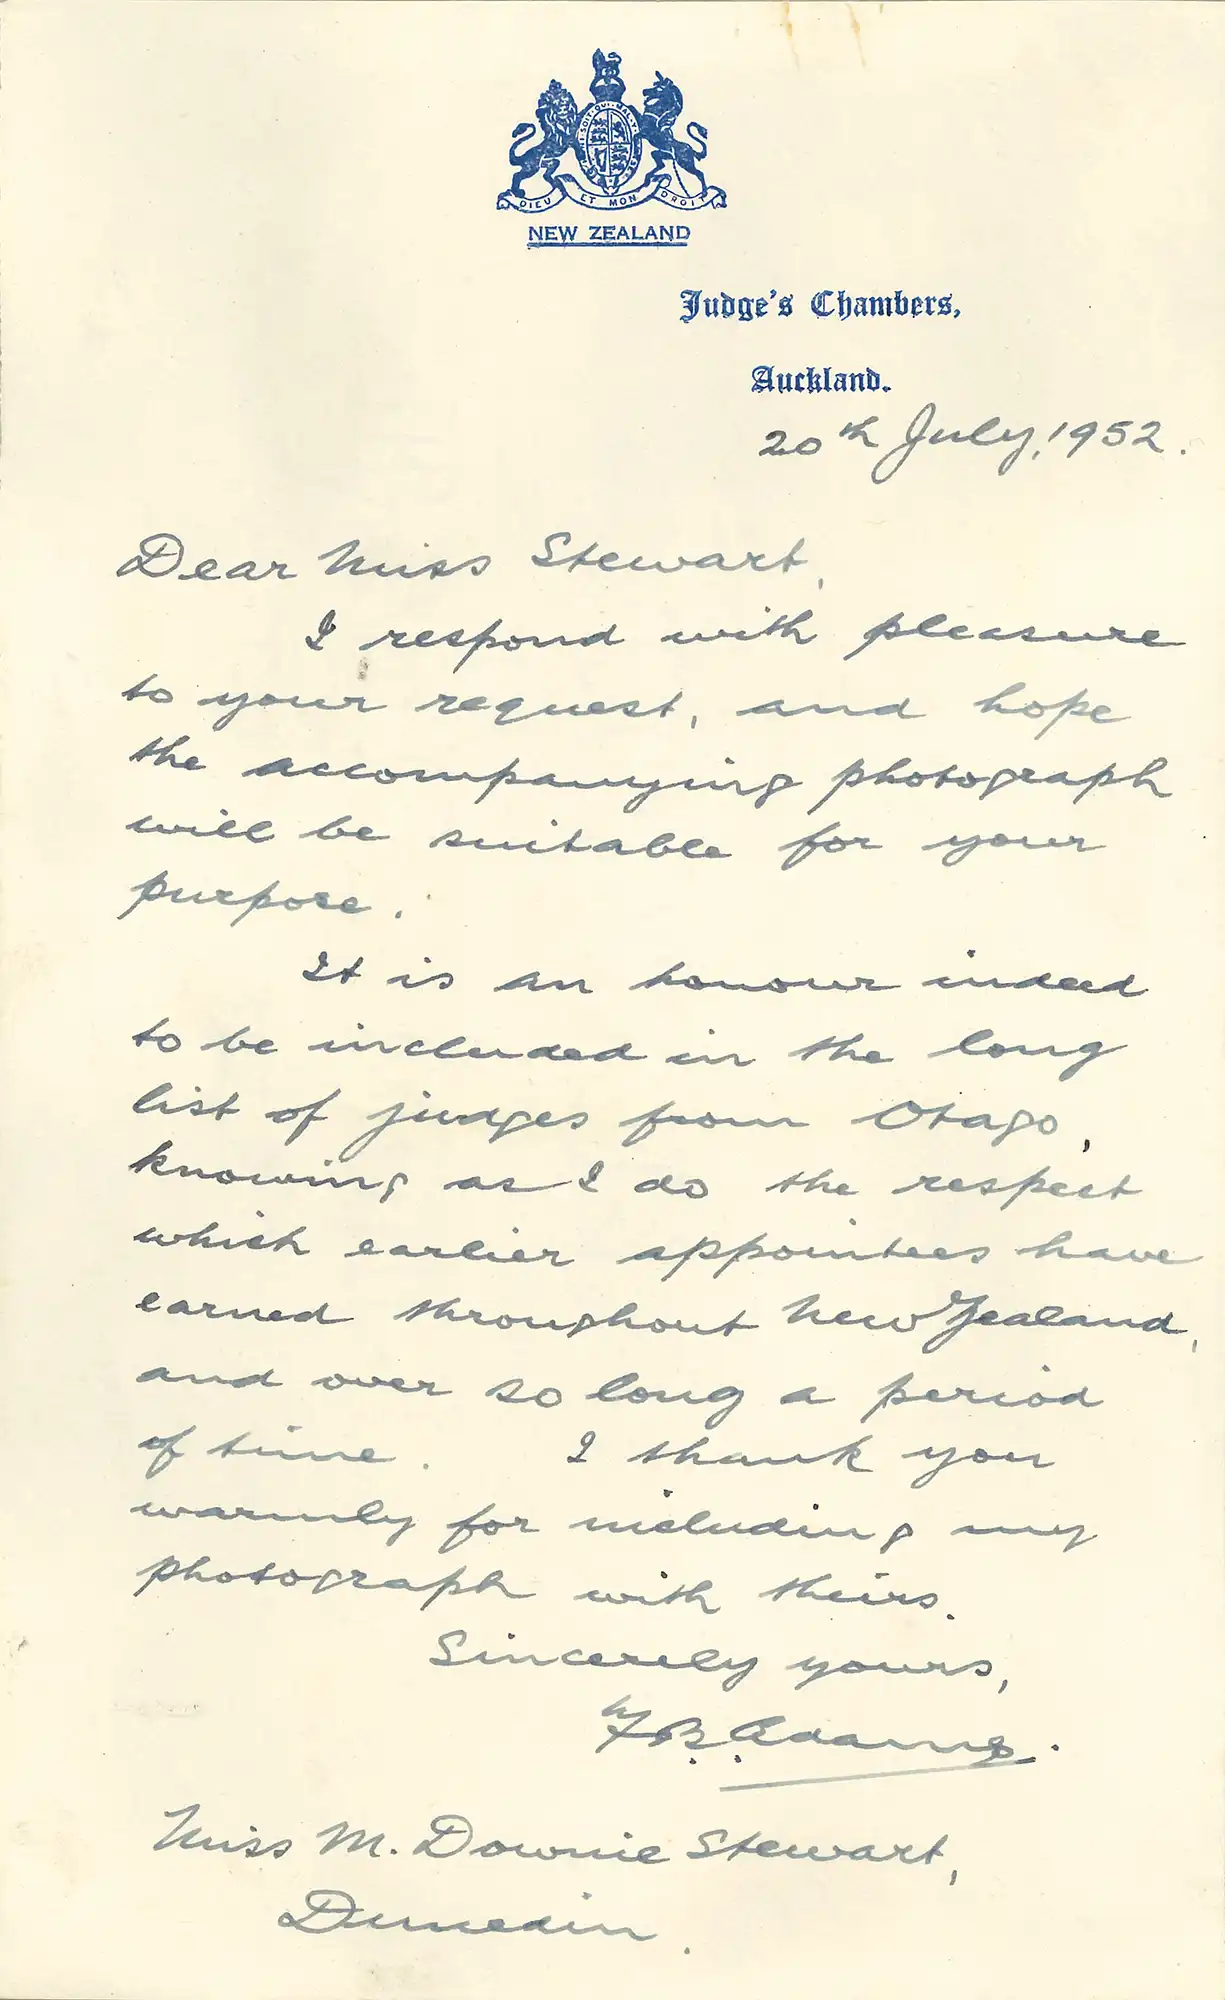 HONI SOIT QUI MAL Y PENSE
DIEU ET MON DROIT
NEW ZEALAND
Judge's Chambers,
Auckland.
20th July, 1952.
Dear Miss Stewart,
I respond with pleasure
to your request, and hope
the accompanying photograph
will be suitable for your
purpose.
It is an honour indeed
to be included in the long
list of judges from Otago,
knowing as I do the respect
which earlier appointees have
earned throughout New Zealand,
and over so long a period
of time. I thank you
warmly for including my
photograph with theirs.
Sincerely yours,
F. B. Adams.
Miss M. Downie Stewart,
Dunedin.